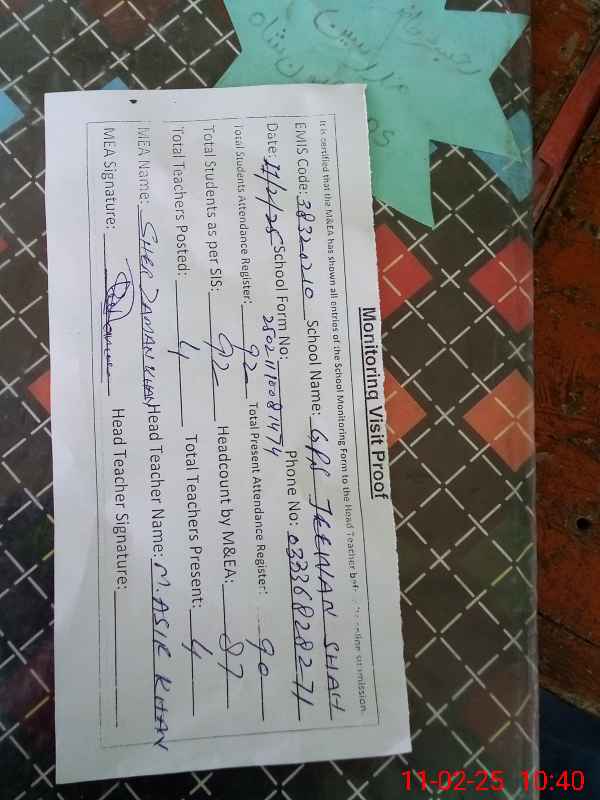 Monitoring Visit Proof
It is certified that the M&EA has shown all entries of the School Monitoring Form to the Head Teacher online submission.
EMIS Code: 38320210 School Name: GPS SHAH
Date: 11/2/25 School Form No: Phone No: 03336828271
Total Students Attendance Register: 92 Total Present Attendance Register: 90
Total Students as per SIS: 92 Headcount by M&EA: 87
Total Teachers Posted: 4 Total Teachers Present: 4
MEA Name: SHER ZAMAN KHAN Head Teacher Name: M. ASIF KHAN
MEA Signature: Head Teacher Signature:
11-02-25 10:40